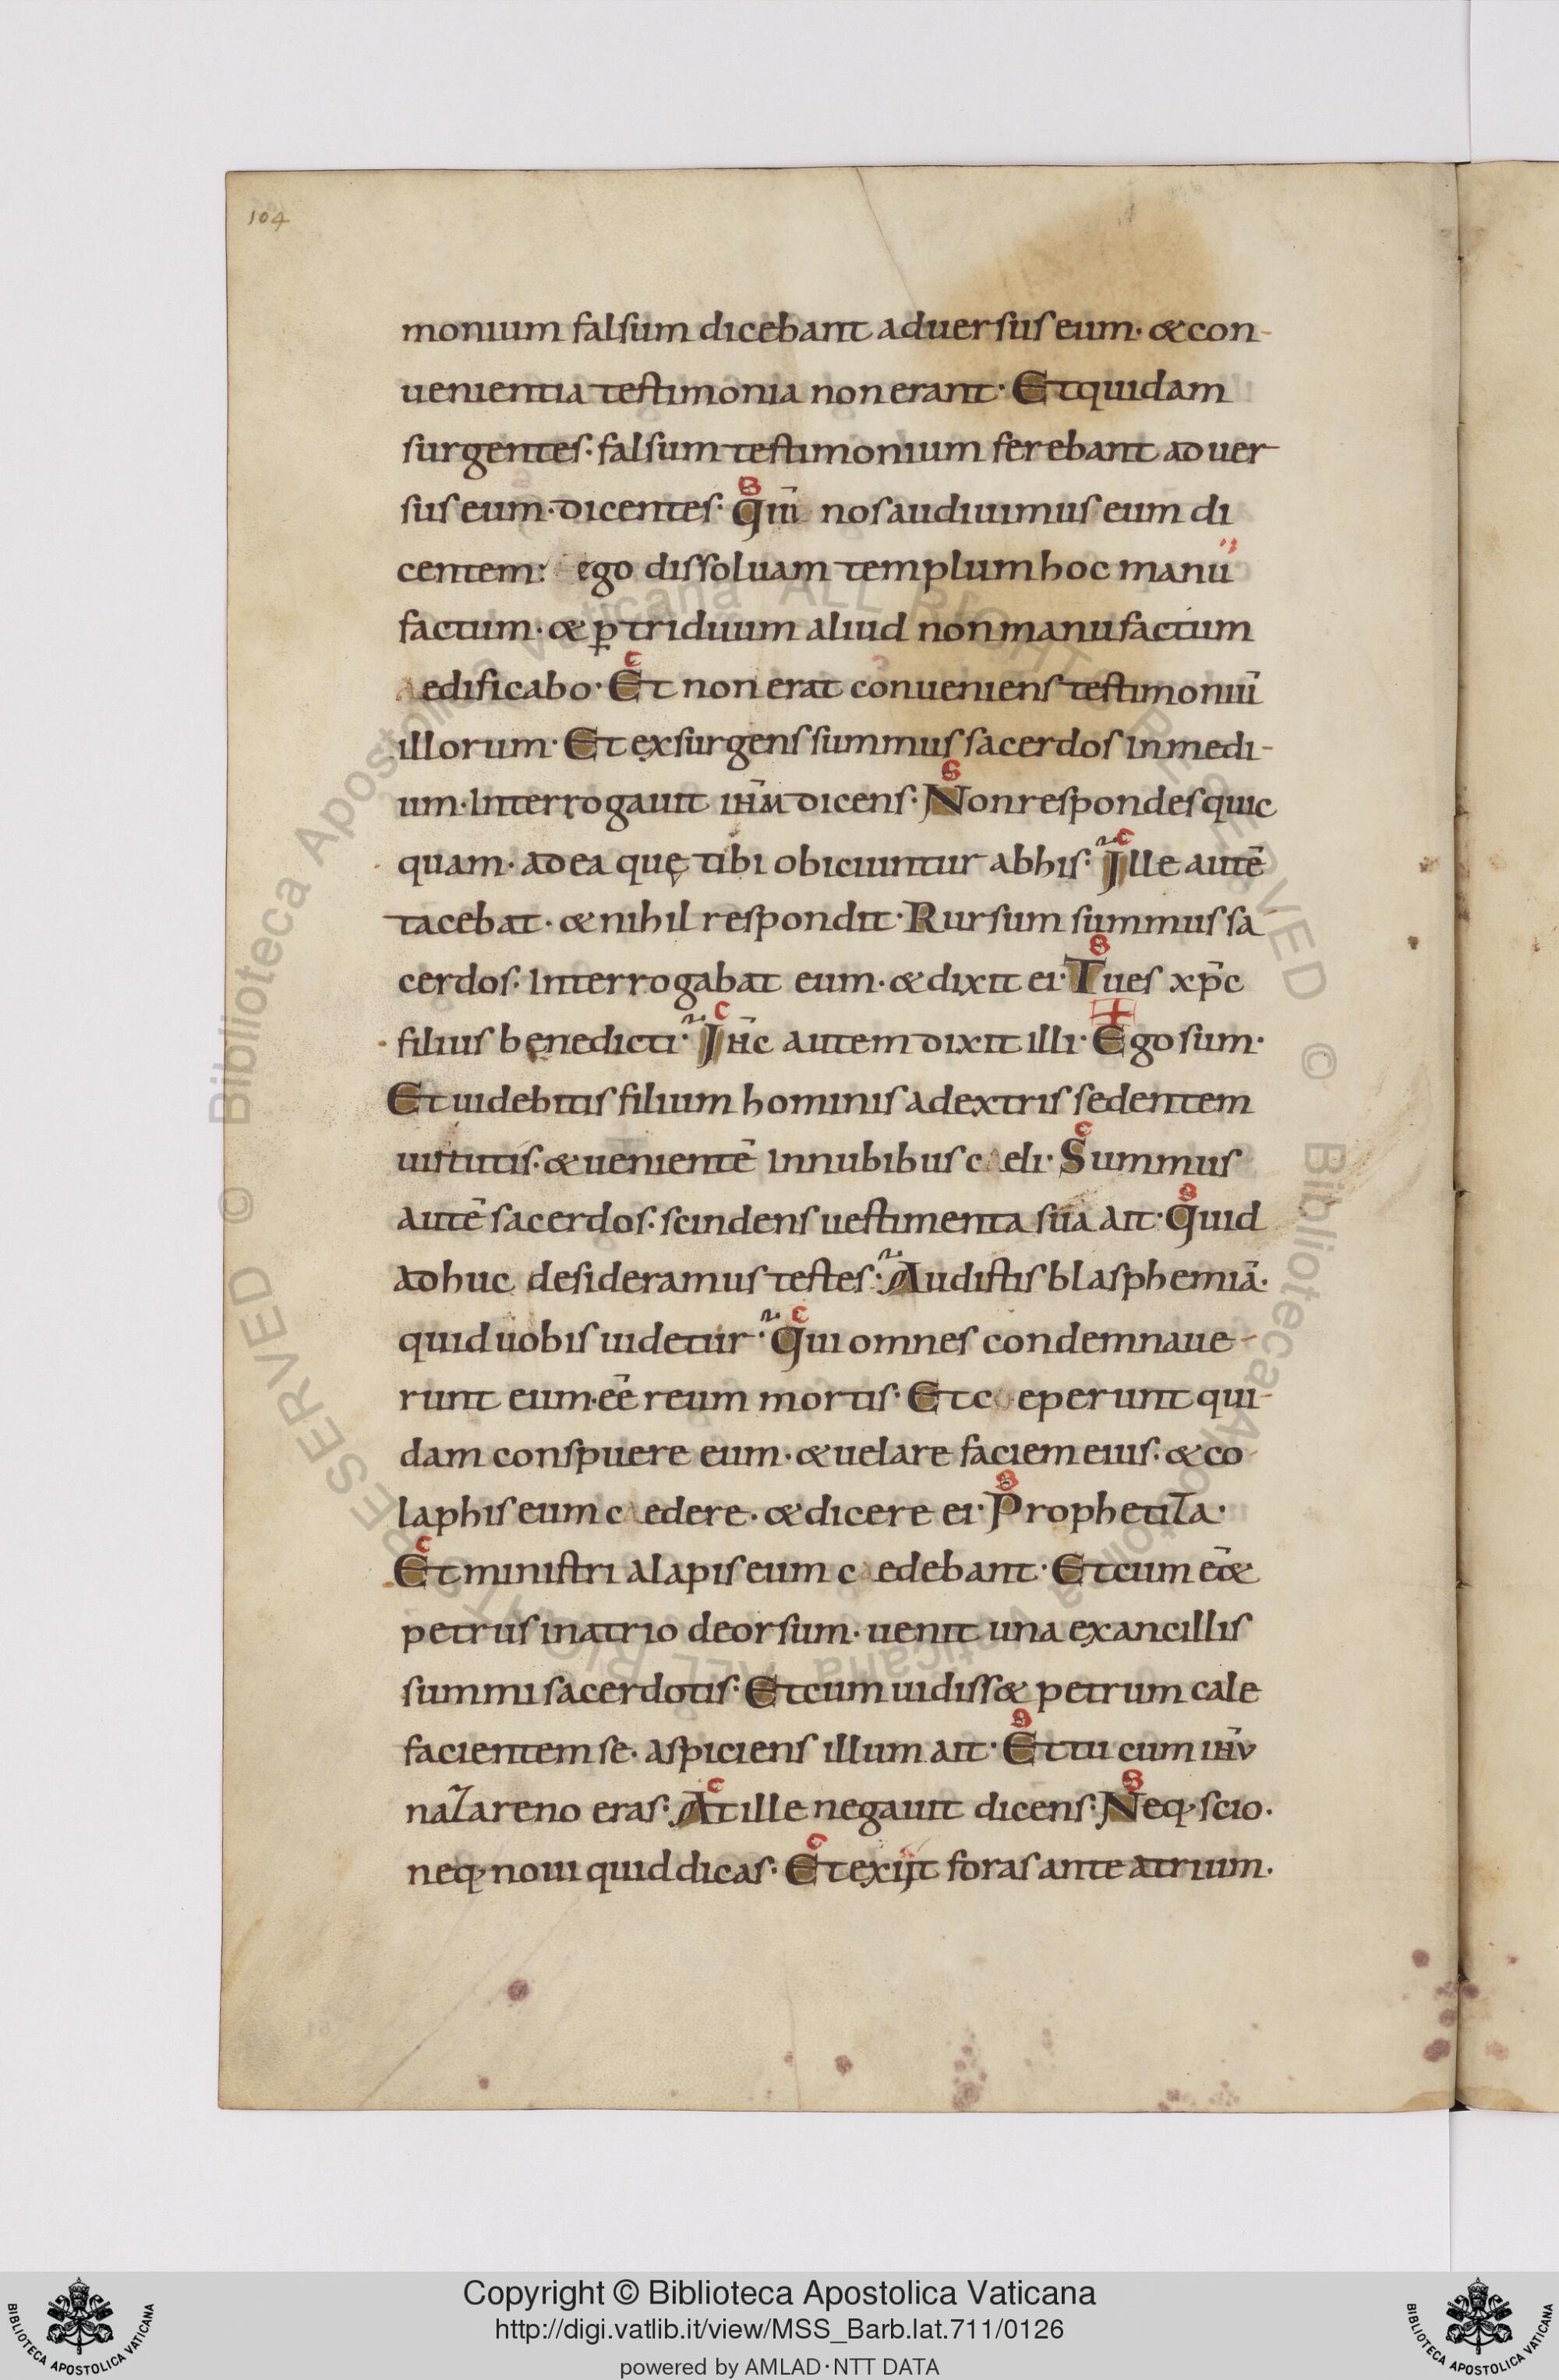 104
monium falsum dicebant aduersus eum· & con-
uenientia testimonia non erant· Et quidam
surgentes· falsum testimonium ferebant aduer
sus eum· dicentes· Qm̄ nos audiuimus eum di
centem: ego dissoluam templum hoc manu
factum· & ꝑ triduum aliud non manu factum
aedificabo· Et non erat conueniens testimoniū
illorum· Et exsurgens summus sacerdos in medi-
um· Interrogauit ihm̄ dicens· Non respondes quic
quam· ad ea quę tibi obiciuntur ab his· Ille autē
tacebat· & nihil respondit· Rursum summus sa
cerdos· Interrogabat eum· & dixit ei· Tu es xp̄c
filius benedicti· Ih̄c autem dixit illi· Ego sum·
Et uidebitis filium hominis a dextris sedentem
uirtutis· & uenientē In nubibus caeli· Summus
autē sacerdos· scindens uestimenta sua ait· Quid
adhuc desideramus testes· Audistis blasphemiā·
quid uobis uidetur· Qui omnes condemnaue-
runt eum· ēe reum mortis· Et coeperunt qui-
dam conspuere eum· & uelare faciem eius· & co
laphis eum caedere· & dicere ei· Prophetiza·
Et ministri alapis eum caedebant· Et cum eē&
petrus in atrio deorsum· uenit una ex ancillis
summi sacerdotis· Et cum uidiss& petrum cale
facientem se· aspiciens illum ait· Et tu cum ihū
nazareno eras· At ille negauit dicens· Neq; scio·
neq; noui quid dicas· Et exijt foras ante atrium·
© Biblioteca Apostolica Vaticana ALL RIGHTS RESERVED
© Biblioteca Apostolica Vaticana ALL RIGHTS RESERVED
Copyright © Biblioteca Apostolica Vaticana
http://digi.vatlib.it/view/MSS_Barb.lat.711/0126
powered by AMLAD·NTT DATA
BIBLIOTECA APOSTOLICA VATICANA
BIBLIOTECA APOSTOLICA VATICANA